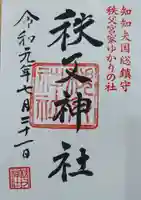 知知夫国総鎮守
秩父宮家ゆかりの社
秩父神社
令和元年七月三十一日